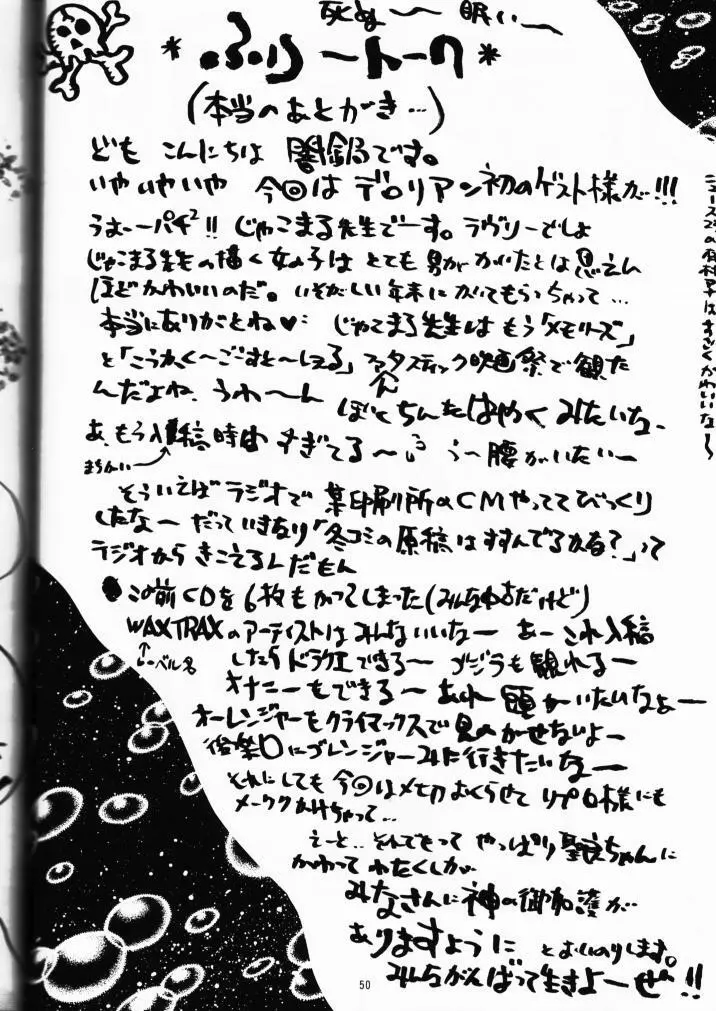 死ぬ〜 眠い〜
*ふりートーク*
(本当のあとがき…)
ども こんにちは 闇鍋です。
いやいやいや 今回は デロリアン初のゲスト様が!!!
うぉーーパチ²!! じゃこまる先生でーす。ラヴリーでしょ
じゃこまる先生の描く女の子は とても男がかいたとは思えん
ほどかわいいのだ。いそがしい年末に かいてもらっちゃって…
本当にありがとね♥ じゃこまる先生は もう「メモリーズ」
と「こうかく〜ごーすと〜しぇる」ファンタスティック映画祭で観た
んだよね、うわ〜ん ぼくちんもはやく みたいなー
あ、もう入稿時間 すぎてる〜 う〜腰がいたいー
まちがい
そういえば ラジオで 某印刷所のCMやっててびっくり
したなー だっていきなり「冬コミの原稿はすすんでるかな?」って
ラジオから きこえるんだもん
この前CDを6枚もかってしまった(みんな中古だけど)
WAXTRAXのアーティストは みんないいなー あーこれ入稿
↑レーベル名
したら ドラクエできる〜 ゴジラも観れるー
オナニーもできる〜 あれ 頭がいたいなぁー
オーレンジャーもクライマックスで 見のがせないよー
後楽口にゴレンジャーみに行きたいなー
それにしても 今回はメ切おくらせて リプロ様にも
メーワクかけちゃって…
えーと… そんでもって やっぱり 聖良ちゃんに
かわって わたくしが
みなさんに 神の御加護が
ありますように とおいのりします。
みんながんばって生きよーぜ!!
すごくかわいいな〜
50